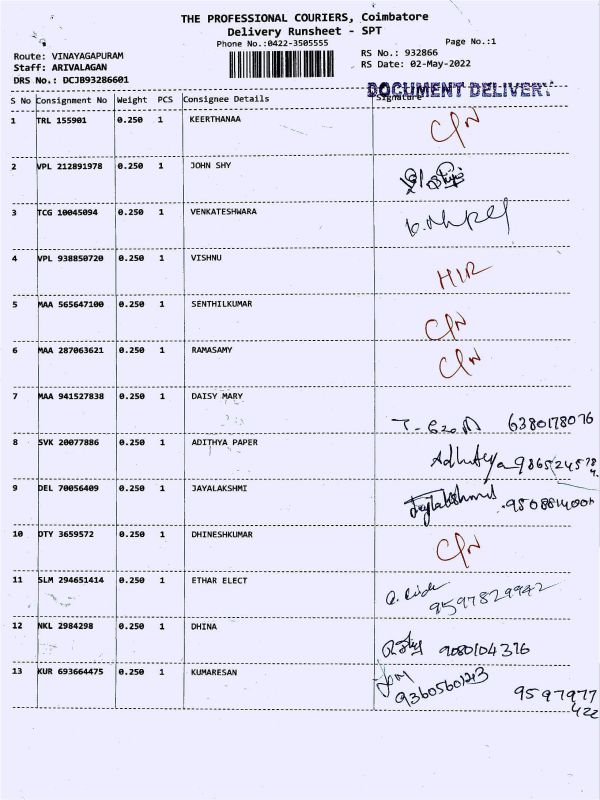 THE PROFESSIONAL COURIERS, Coimbatore
Delivery Runsheet - SPT
Phone No.:0422-3505555
Page No.:1
Route: VINAYAGAPURAM
RS No.: 932866
Staff: ARIVALAGAN
RS Date: 02-May-2022
DRS No.: DCJB93286601
DOCUMENT DELIVERY
S No Consignment No Weight PCS Consignee Details Signature
1 TRL 155901 0.250 1 KEERTHANAA C/N
2 VPL 212891978 0.250 1 JOHN SHY
3 TCG 10045094 0.250 1 VENKATESHWARA
4 VPL 938850720 0.250 1 VISHNU HIR
5 MAA 565647100 0.250 1 SENTHILKUMAR C/N
6 MAA 287063621 0.250 1 RAMASAMY C/N
7 MAA 941527838 0.250 1 DAISY MARY 6380178076
8 SVK 20077886 0.250 1 ADITHYA PAPER
9 DEL 70056409 0.250 1 JAYALAKSHMI
10 DTY 3659572 0.250 1 DHINESHKUMAR C/N
11 SLM 294651414 0.250 1 ETHAR ELECT
9597829942
12 NKL 2984298 0.250 1 DHINA 9080104376
13 KUR 693664475 0.250 1 KUMARESAN
9597977
422